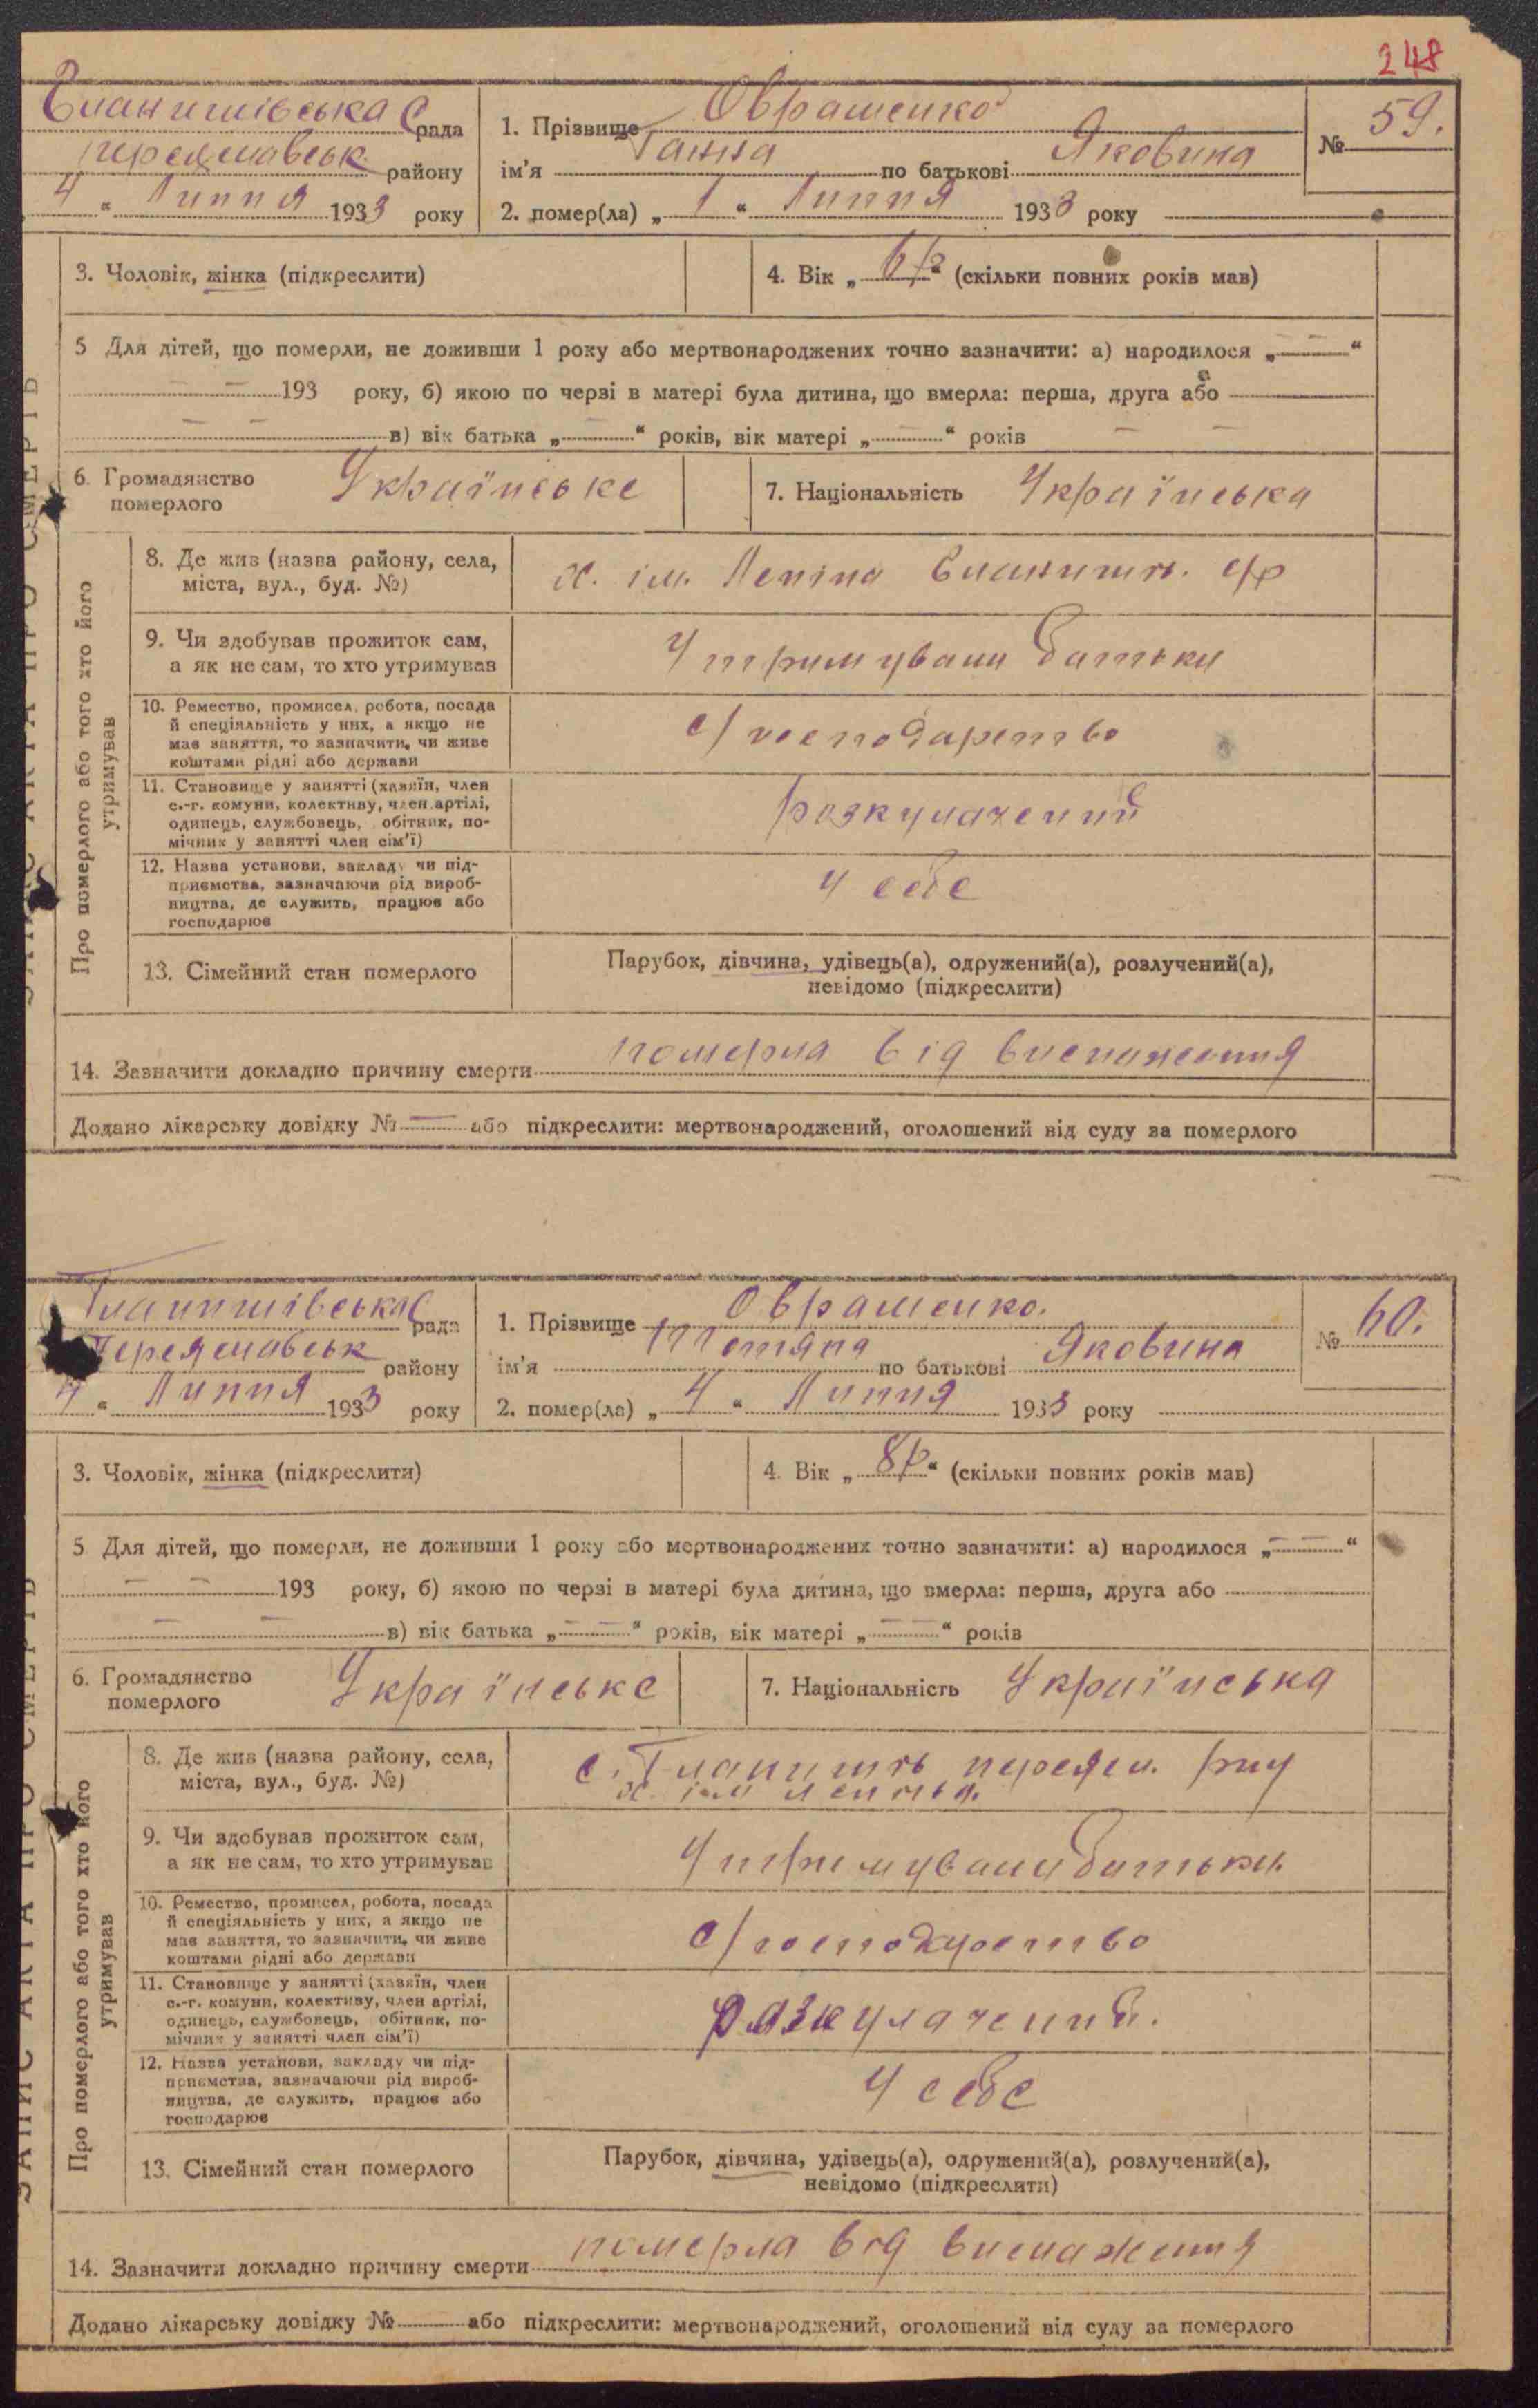 248
Гланишівська С рада
Переяславськ району
4 " Липня 1933 року
1. Прізвище Оврашенко
ім'я Ганна по батькові Яковина
№ 59.
2. помер(ла) „ 1 " Липня 1933 року
3. Чоловік, жінка (підкреслити)
4. Вік „ 6 р " (скільки повних років мав)
5 Для дітей, що померли, не доживши 1 року або мертвонароджених точно зазначити: а) народилося „ — "
— — 193 року, б) якою по черзі в матері була дитина, що вмерла: перша, друга або
— — в) вік батька „ — " років, вік матері „ — " років — —
6. Громадянство
померлого
Українське
7. Національність Українська
ЗАПИС АКТА ПРО СМЕРТЬ
Про померлого або того хто його
утримував
8. Де жив (назва району, села,
міста, вул., буд. №)
х. ім. Леніна Гланишів. с/р
9. Чи здобував прожиток сам,
а як не сам, то хто утримував
Утримували батьки
10. Ремество, промисел, робота, посада
й спеціяльність у них, а якщо не
має заняття, то зазначити, чи живе
коштами рідні або держави
с/господарство
11. Становище у занятті (хазяїн, член
с.-г. комуни, колективу, член артілі,
одинець, службовець, обітник, по-
мічник у занятті член сім'ї)
розкулачений
12. Назва установи, закладу чи під-
приємства, зазначаючи рід вироб-
ництва, де служить, працює або
господарює
у себе
13. Сімейний стан померлого
Парубок, дівчина, удівець(а), одружений(а), розлучений(а),
невідомо (підкреслити)
14. Зазначити докладно причину смерти померла від виснаження
Додано лікарську довідку № — або підкреслити: мертвонароджений, оголошений від суду за померлого
Гланишівська С рада
Переяславськ району
4 " Липня 1933 року
1. Прізвище Оврашенко.
ім'я Тетяна по батькові Яковина
№ 60.
2. помер(ла) „ 4 " Липня 1933 року
3. Чоловік, жінка (підкреслити)
4. Вік „ 8 р " (скільки повних років мав)
5 Для дітей, що померли, не доживши 1 року або мертвонароджених точно зазначити: а) народилося „ — — "
— — 193 року, б) якою по черзі в матері була дитина, що вмерла: перша, друга або
— — в) вік батька „ — — " років, вік матері „ — — " років
6. Громадянство
померлого
Українське
7. Національність Українська
ЗАПИС АКТА ПРО СМЕРТЬ
Про померлого або того хто його
утримував
8. Де жив (назва району, села,
міста, вул., буд. №)
с. Гланишів переяс. р-ну
х. ім Леніна.
9. Чи здобував прожиток сам,
а як не сам, то хто утримував
Утримували батьки.
10. Ремество, промисел, робота, посада
й спеціяльність у них, а якщо не
має заняття, то зазначити, чи живе
коштами рідні або держави
с/господарство
11. Становище у занятті (хазяїн, член
с.-г. комуни, колективу, член артілі,
одинець, службовець, обітник, по-
мічник у занятті член сім'ї)
розкулачений.
12. Назва установи, закладу чи під-
приємства, зазначаючи рід вироб-
ництва, де служить, працює або
господарює
У себе
13. Сімейний стан померлого
Парубок, дівчина, удівець(а), одружений(а), розлучений(а),
невідомо (підкреслити)
14. Зазначити докладно причину смерти померла від виснаження
Додано лікарську довідку № або підкреслити: мертвонароджений, оголошений від суду за померлого